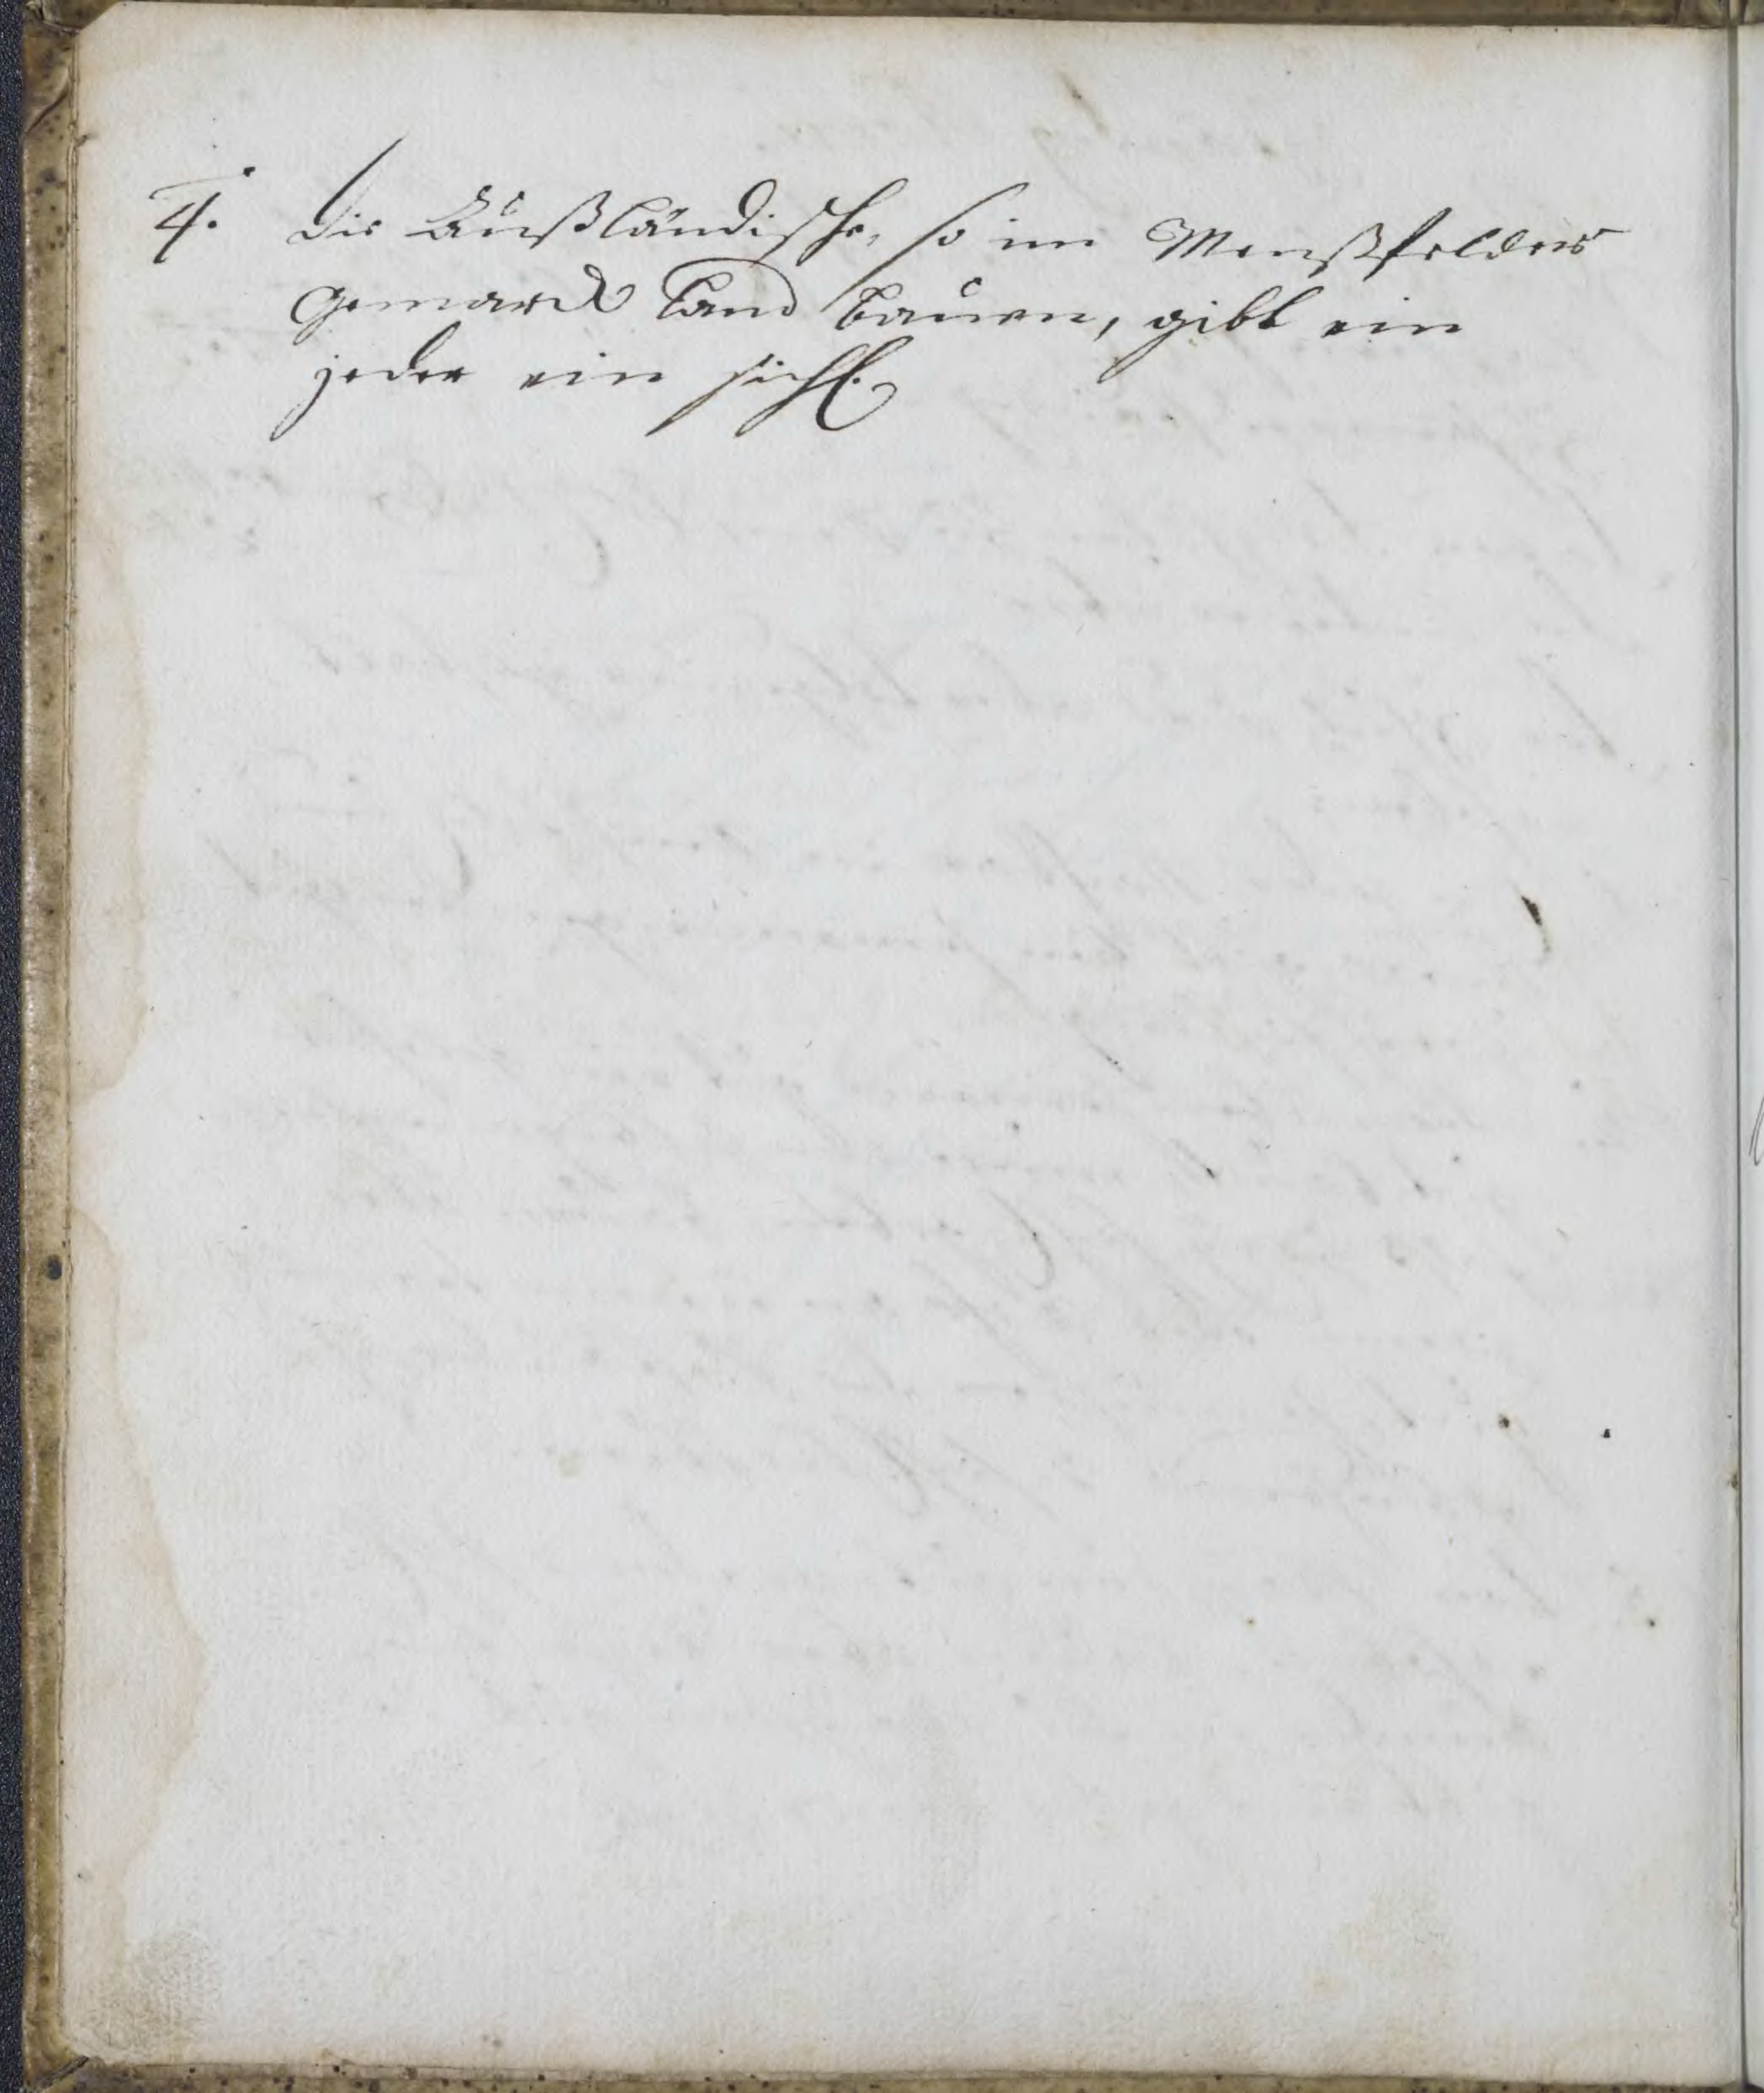 4. Die Außländische, so im Menßfelder
Gemarck Land bauen, gibt ein
jeder ein sichl.